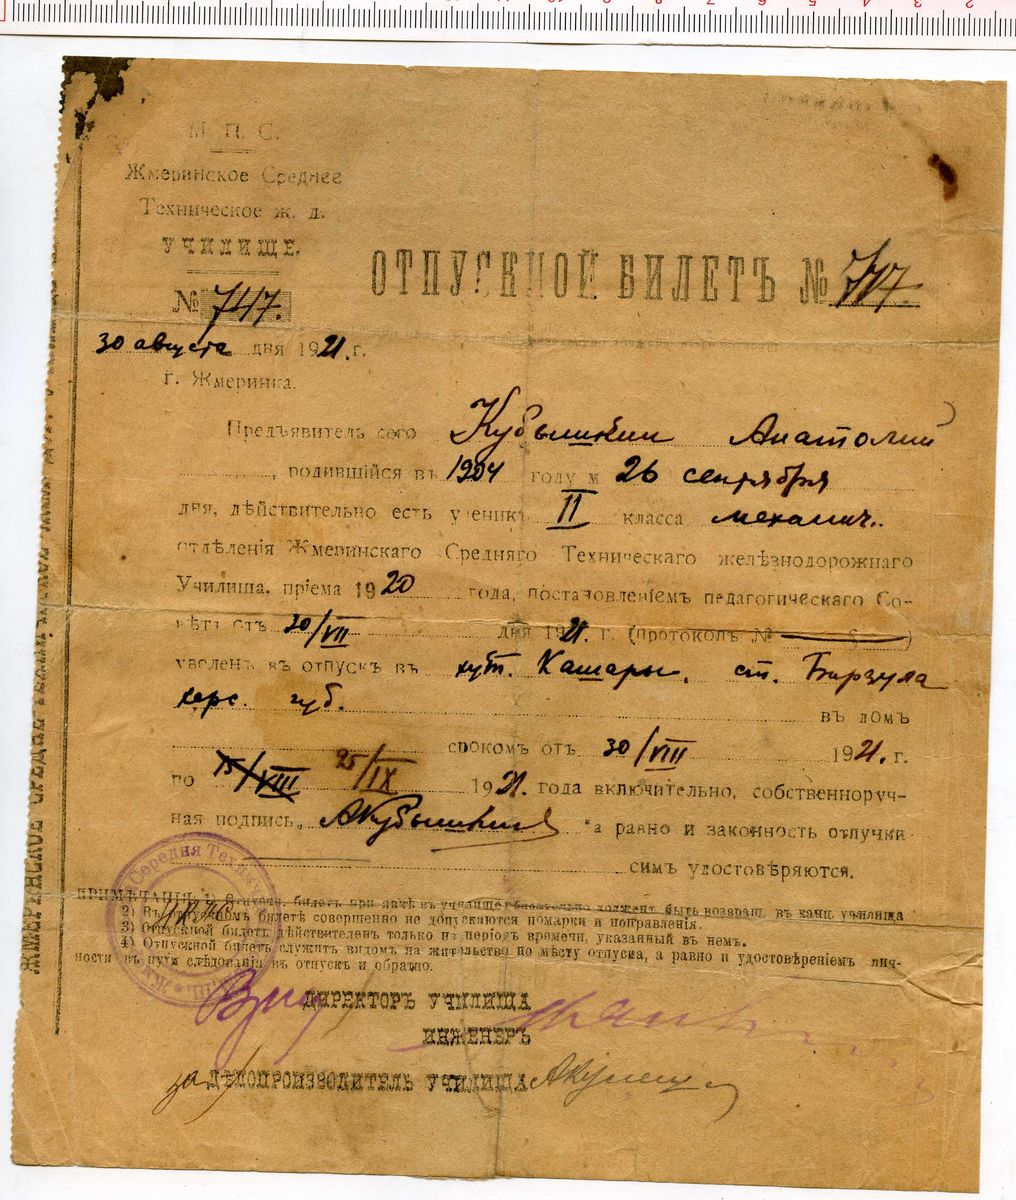 М. П. С.
Жмеринское Среднее
Техническое ж. д.
УЧИЛИЩЕ.
№ 747.
ОТПУСКНОЙ БИЛЕТЪ № 747.
30 августа дня 1921. г.
г. Жмеринка.
Предъявитель сего Кубышкин Анатолий
, родившійся въ 1904 году м 26 сентября
дня, дѣйствительно есть ученикъ II класса механич.
отдѣленія Жмеринскаго Средняго Техническаго желѣзнодорожнаго
Училища, пріема 1920 года, постановленіемъ педагогическаго Со-
вѣта отъ 20/VII дня 1921. г. (протоколъ № )
уволенъ въ отпускъ въ хут. Кашары, ст. Бирзула
херс. губ. въ домъ
срокомъ отъ 30/VIII 1921. г.
по 15/VIII 25/IX 1921. года включительно, собственноруч-
ная подпись „ АКубышкин " а равно и законность отлучки
симъ удостовѣряются.
ПРИМѢЧАНІЯ 1) Отпускн. билетъ при явкѣ въ училище обязательно долженъ быть возвращ. въ канц. училища
2) Въ отпускномъ билетѣ совершенно не допускаются помарки и поправленія.
3) Отпускной билетъ дѣйствителенъ только на періодъ времени, указанный въ немъ.
4) Отпускной билетъ служитъ видомъ на жительство по мѣсту отпуска, а равно и удостовѣреніемъ лич-
ности въ пути слѣдованія въ отпускъ и обратно.
ДИРЕКТОРЪ УЧИЛИЩА
ИНЖЕНЕРЪ
за ДѢЛОПРОИЗВОДИТЕЛЬ УЧИЛИЩА
Середня Техніч
ЖМЕРИНСКОЕ СРЕДНЕЕ